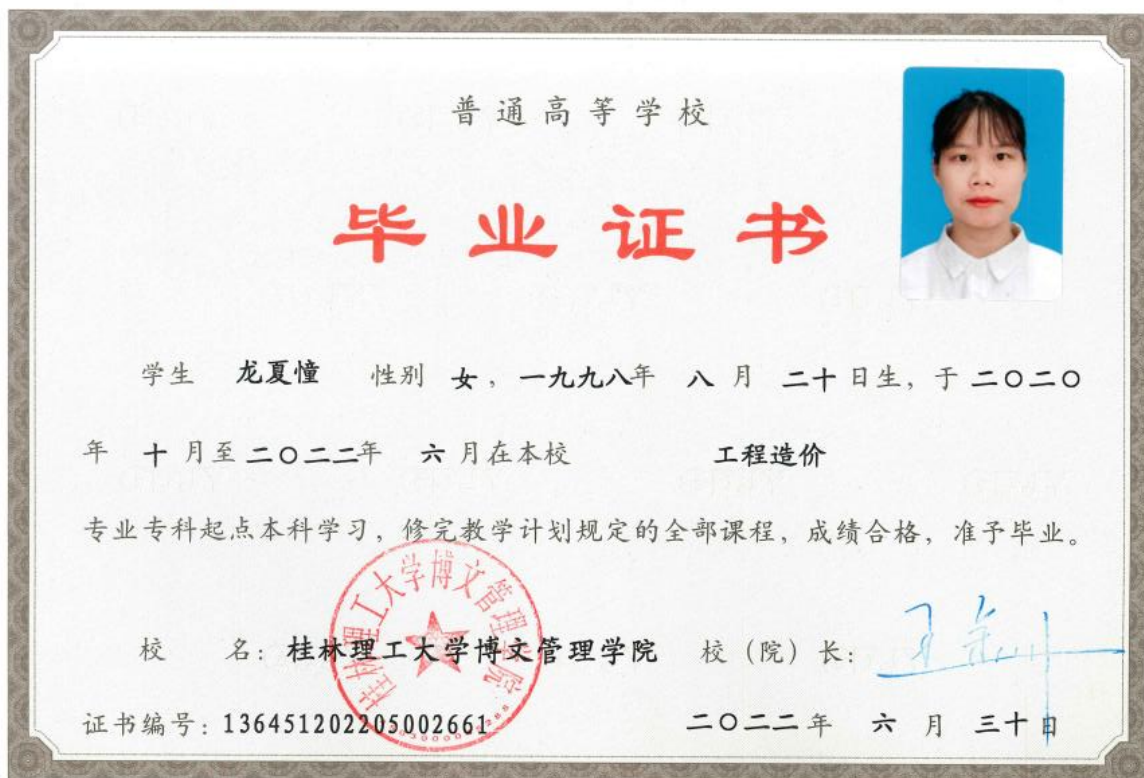 普通高等学校
毕业证书
学生 龙夏憧 性别 女，一九九八年 八 月 二十日生，于二〇二〇
年 十 月至二〇二二年 六 月在本校 工程造价
专业专科起点本科学习，修完教学计划规定的全部课程，成绩合格，准予毕业。
桂林理工大学博文管理学院
校 名：桂林理工大学博文管理学院 校（院）长：
证书编号：136451202205002661 二〇二二年 六 月 三十日